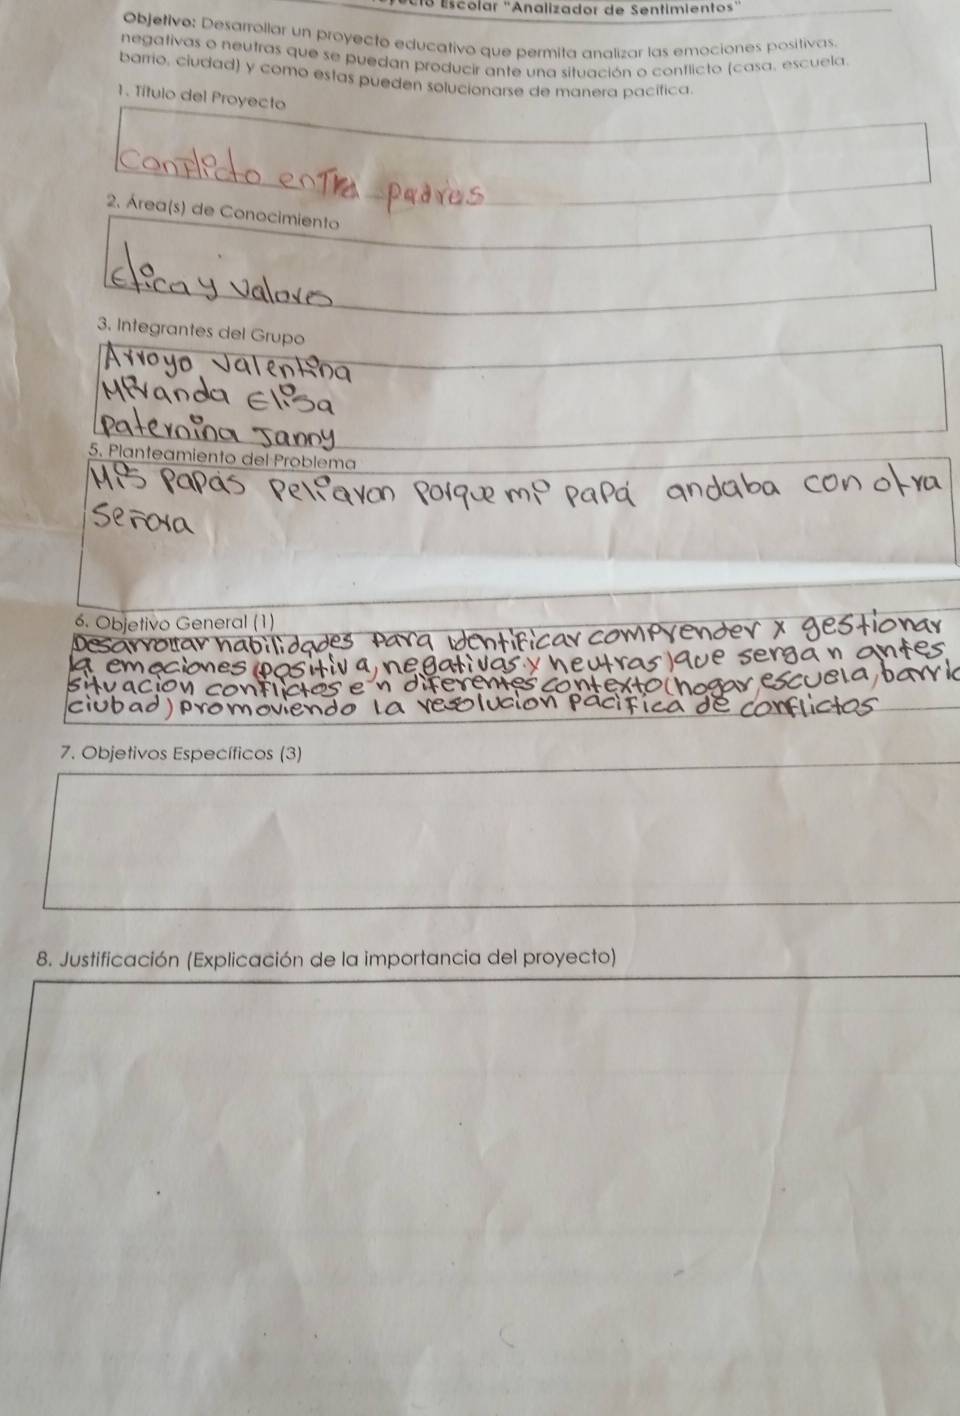 Escolar "Analizador de Sentimientos"
Objetivo: Desarrollar un proyecto educativo que permita analizar las emociones positivas,
negativas o neutras que se puedan producir ante una situación o conflicto (casa, escuela,
barrio, ciudad) y como estas pueden solucionarse de manera pacífica.
1. Título del Proyecto
conflicto entra padres
2. Área(s) de Conocimiento
etica y valores
3. Integrantes del Grupo
Arroyo Valentina
Miranda Elisa
paternina Janny
5. Planteamiento del Problema
Mis Papás peliaron porque mi papá andaba con otra
señora
6. Objetivo General (1)
Desarrollar habilidades para identificar comprender x gestionar
la emociones (positiva, negativas y neutras) que sergan antes
situacion conflictos en diferentes contexto (hogar, escuela, barrio
ciubad) promoviendo la resolucion pacifica de conflictos
7. Objetivos Específicos (3)
8. Justificación (Explicación de la importancia del proyecto)